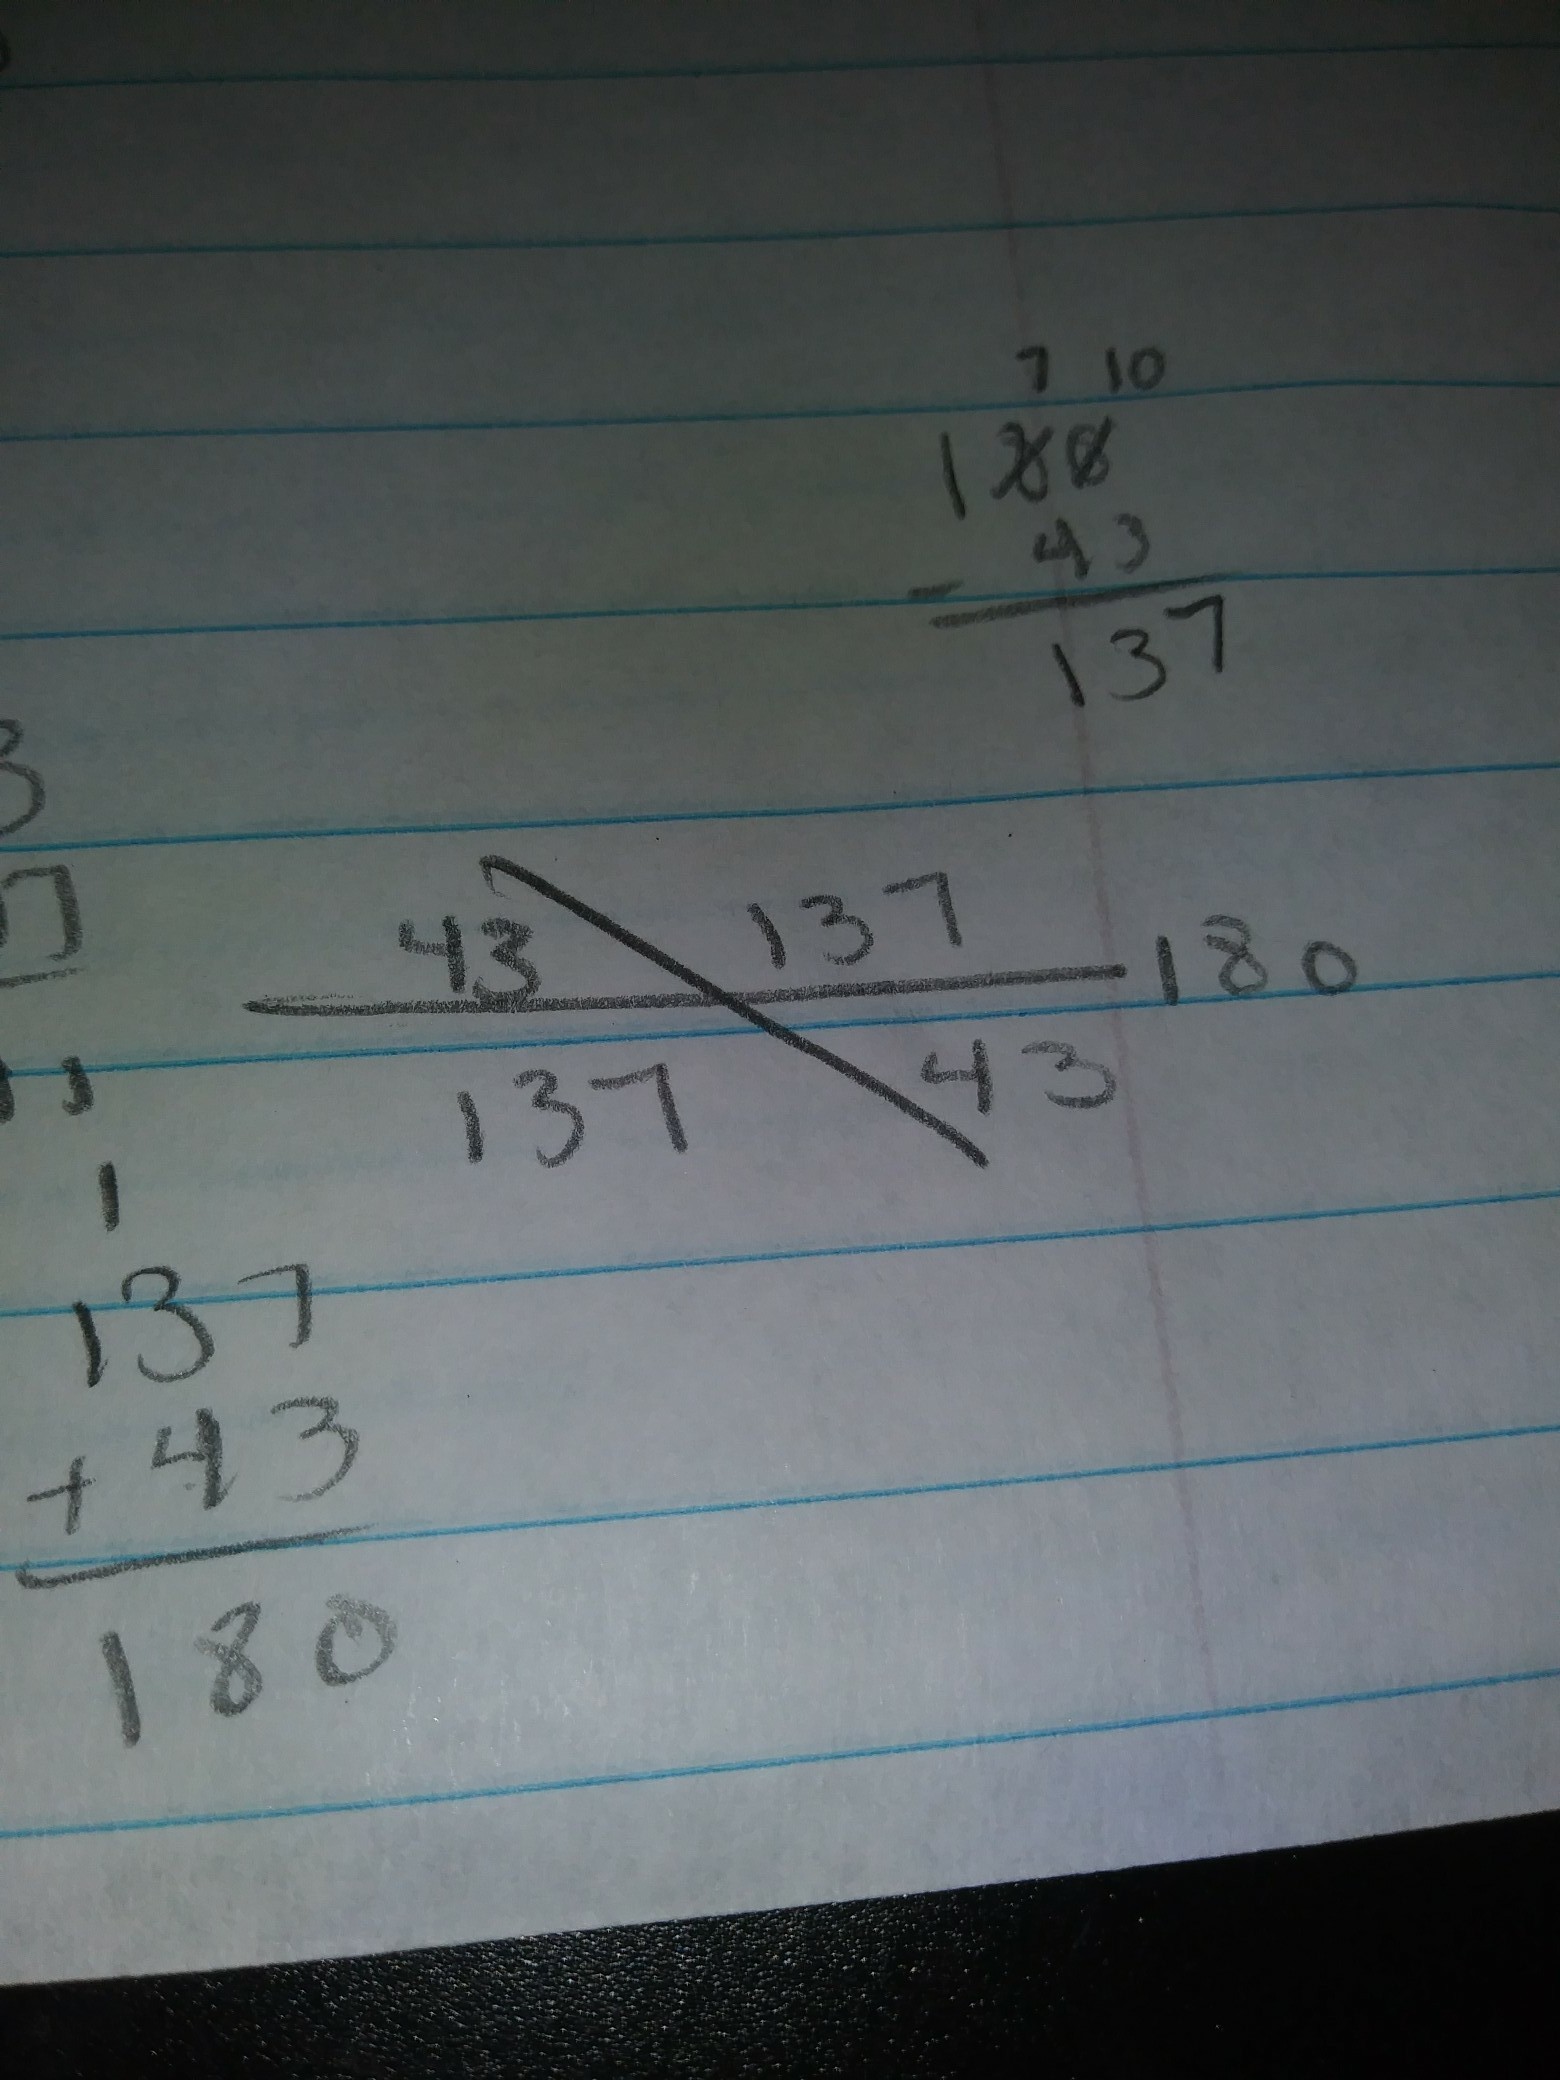 7 10
180
43
-
137
3
43 137
180
137 43
1
137
+ 43
180